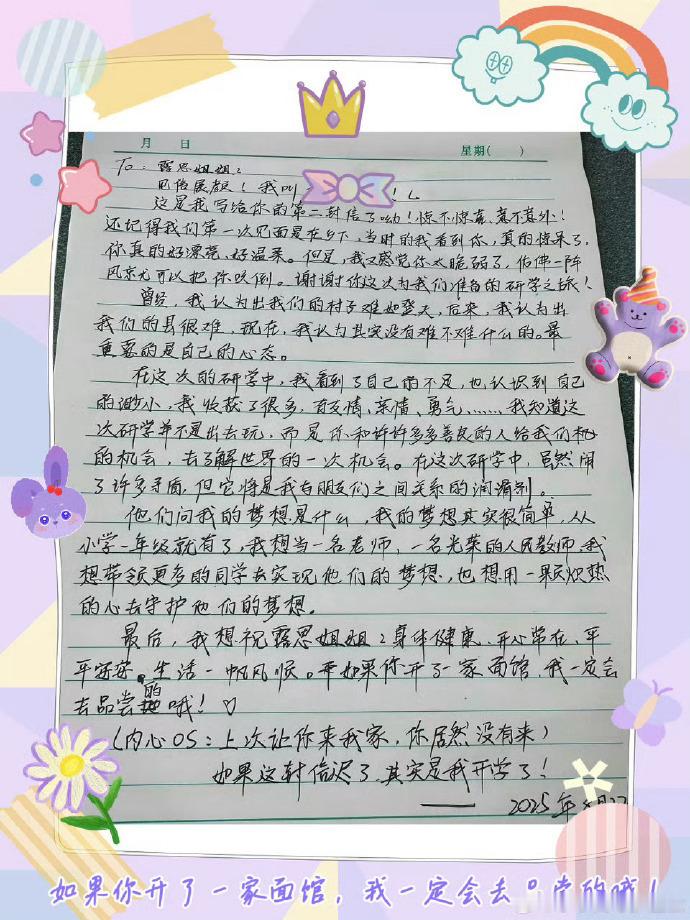 月 日 星期( )
To：露思姐姐：
见信展颜！我叫 ！
这是我写给你的第二封信了呦！惊不惊喜，意不意外！
还记得我们第一次见面是在乡下，当时的我看到你，真的惊呆了，
你真的好漂亮，好温柔。但是，我又感觉你太脆弱了，仿佛一阵
风京尤可以把你吹倒。谢谢你这次为我们准备的研学之旅！
曾经，我认为出我们的村子难如登天，后来，我认为出
我们的县很难，现在，我认为其实没有难不难什么的。最
重要的是自己的心态。
在这次的研学中，我看到了自己的不足，也认识到自己
的渺小，我收获了很多，有友情、亲情、勇气……我知道这
次研学并不是出去玩，而是你和许许多多善良的人给我们
的机会，去了解世界的一次机会。在这次研学中，虽然闹
了许多矛盾，但它将是我与朋友们之间关系的润滑剂。
他们问我的梦想是什么，我的梦想其实很简单，从
小学一年级就有了，我想当一名老师，一名光荣的人民教师，我
想带领更多的同学去实现他们的梦想，也想用一颗炽热
的心去守护他们的梦想。
最后，我想祝露思姐姐：身体健康、开心常在、平
平安安、生活一帆风顺。如果你开了一家面馆，我一定会
去品尝的哦！♡
（内心OS：上次让你来我家，你居然没有来）
如果这封信迟了，其实是我开学了！
—— 2025年
如果你开了一家面馆，我一定会去品尝的哦！